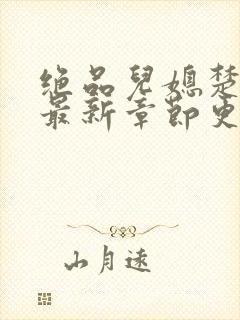 绝品儿媳楚
最新章节更
山月远